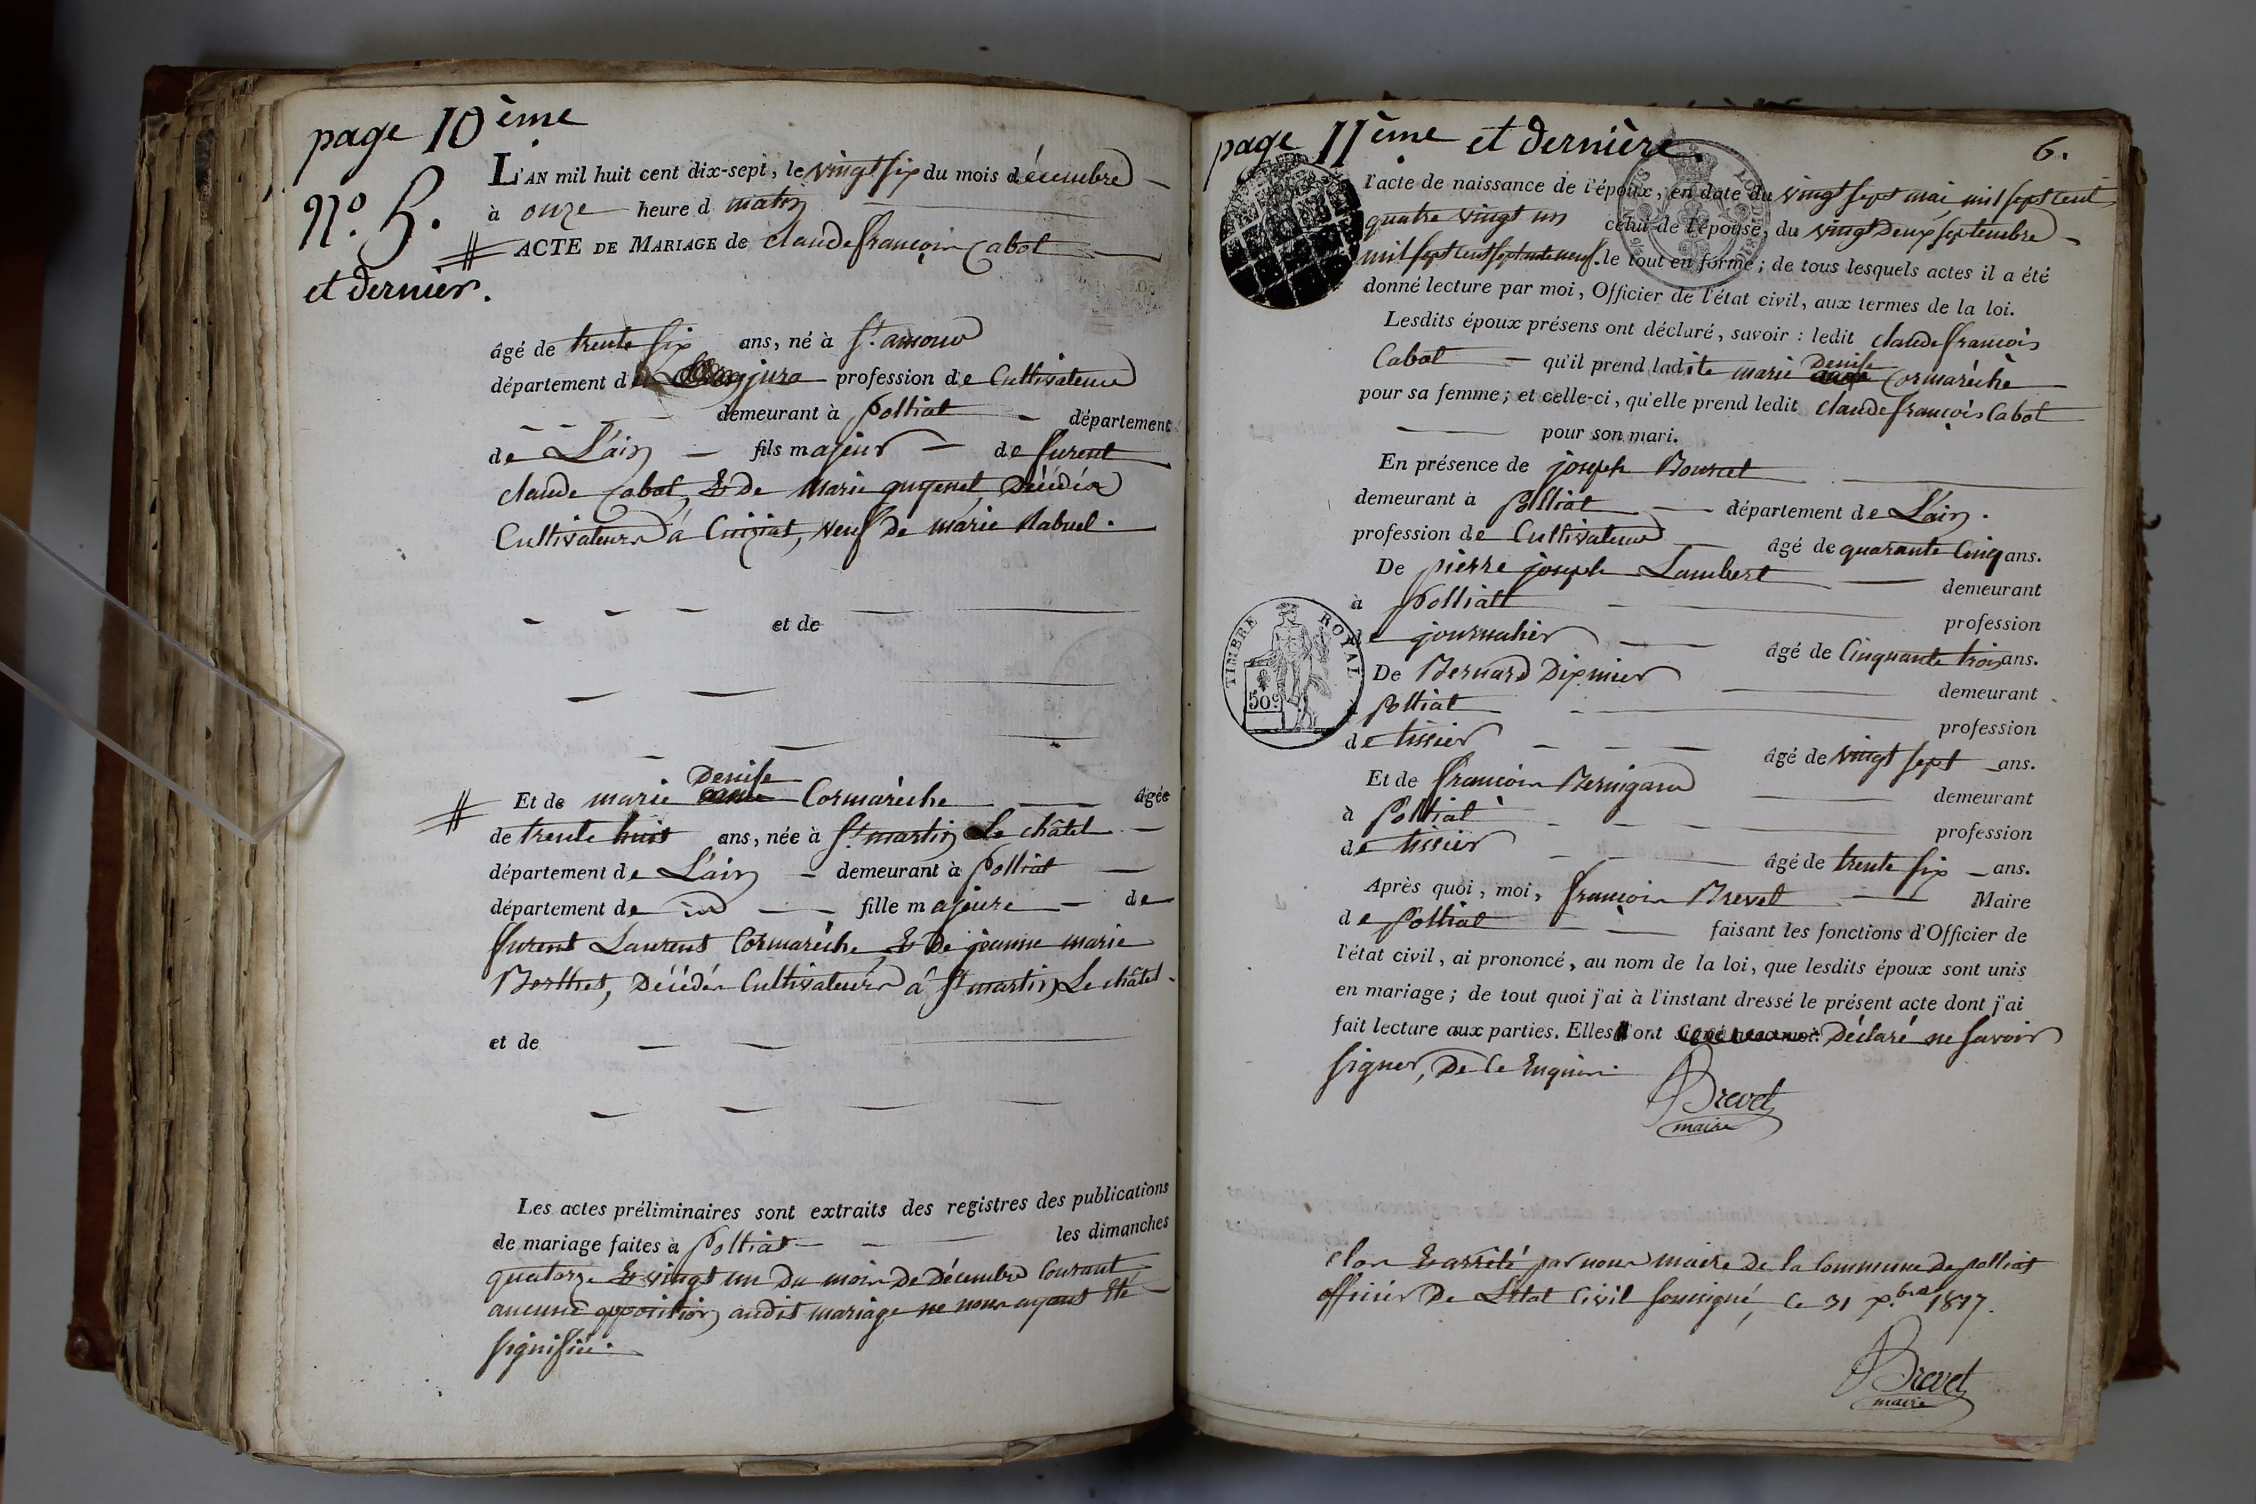 page 10ème
L'AN mil huit cent dix-sept, le vingt six du mois décembre
N.° 5.
à onze heure d matin
# ACTE DE MARIAGE de claude françois Cabot
et dernier.
âgé de trente six ans, né à St. amour
département du jura profession de Cultivateur
demeurant à Polliat département
de L'ain fils majeur de furent
claude Cabot, & de Marie guyenet, Décédés
Cultivateurs à Cuiziat, veuf de marie Rabuel.
et de
Denise
# Et de marie Cormarèche âgée
de trente huit ans, née à St martin Le châtel
département de L'ain demeurant à Polliat
département de fille majeure de
furent Laurent Cormarèche, & De jeanne marie
Berthet, Décédés Cultivateurs à St martin Le châtel.
et de
Les actes préliminaires sont extraits des registres des publications
de mariage faites à Polliat les dimanches
quatorze & vingt un Du mois De Décembre Courant
aucune opposition audit mariage ne nous ayant Eté
signifiée.
page 11ème et dernière.
6.
l'acte de naissance de l'époux, en date du vingt sept mai mil sept cent
quatre vingt un celui de l'épouse, du vingt Deux septembre
mil sept cent septante neuf. le tout en forme; de tous lesquels actes il a été
donné lecture par moi, Officier de l'état civil, aux termes de la loi.
Lesdits époux présens ont déclaré, savoir : ledit claude françois
Cabot qu'il prend ladite marie Denise Cormarèche
pour sa femme; et celle-ci, qu'elle prend ledit claude françois Cabot
pour son mari.
En présence de joseph Bourcet
demeurant à Polliat département de L'ain.
profession de Cultivateur âgé de quarante Cinq ans.
De pierre joseph Lambert demeurant
à Polliat profession
de journalier âgé de Cinquante trois ans.
De Bernard Dipnier demeurant
à Polliat profession
de tissier âgé de vingt sept ans.
Et de françois Bernigaud demeurant
à Polliat profession
de tissier âgé de trente six ans.
Après quoi, moi, françois Brevet Maire
de Polliat faisant les fonctions d'Officier de
l'état civil, ai prononcé, au nom de la loi, que lesdits époux sont unis
en mariage; de tout quoi j'ai à l'instant dressé le présent acte dont j'ai
fait lecture aux parties. Elles ont signé avec moi. Déclaré ne savoir
signer, De Ce Enquis.
Brevet
maire
TIMBRE ROYAL
50c
clos & arrêté par nous maire De la Commune De polliat
officier De L'état Civil soussigné, Ce 31 Xbre 1817.
Brevet
maire